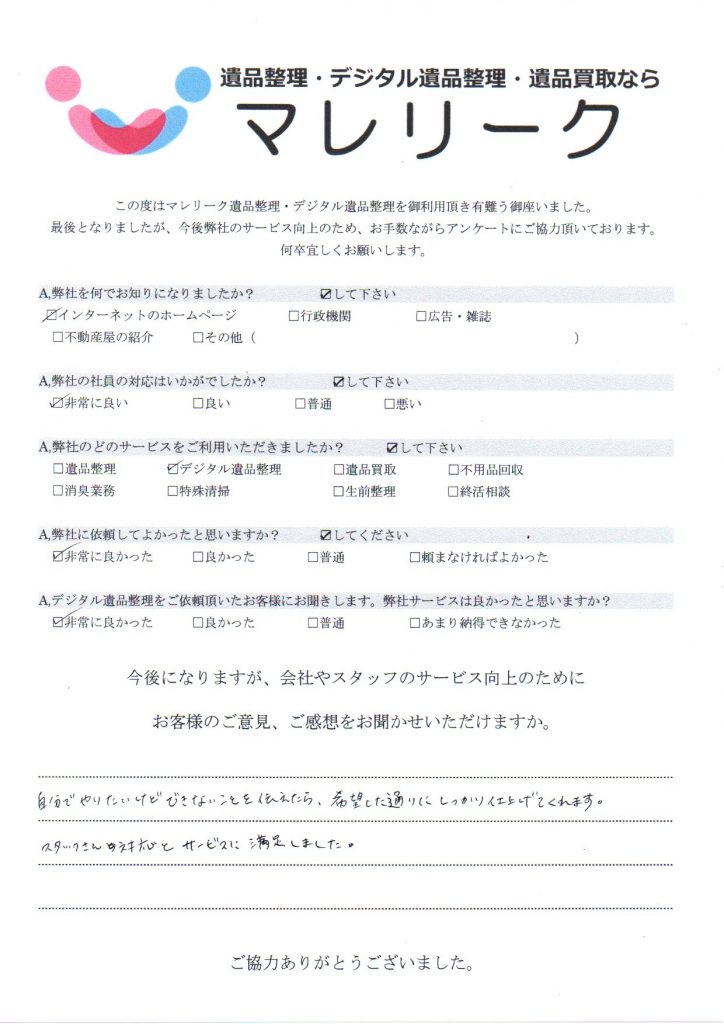 遺品整理・デジタル遺品整理・遺品買取なら
マレリーク
この度はマレリーク遺品整理・デジタル遺品整理を御利用頂き有難う御座いました。
最後となりましたが、今後弊社のサービス向上のため、お手数ながらアンケートにご協力頂いております。
何卒宜しくお願いします。
A,弊社を何でお知りになりましたか？ ☑して下さい
☑インターネットのホームページ □行政機関 □広告・雑誌
□不動産屋の紹介 □その他（ ）
A,弊社の社員の対応はいかがでしたか？ ☑して下さい
☑非常に良い □良い □普通 □悪い
A,弊社のどのサービスをご利用いただきましたか？ ☑して下さい
□遺品整理 ☑デジタル遺品整理 □遺品買取 □不用品回収
□消臭業務 □特殊清掃 □生前整理 □終活相談
A,弊社に依頼してよかったと思いますか？ ☑してください
☑非常に良かった □良かった □普通 □頼まなければよかった
A,デジタル遺品整理をご依頼頂いたお客様にお聞きします。弊社サービスは良かったと思いますか？
☑非常に良かった □良かった □普通 □あまり納得できなかった
今後になりますが、会社やスタッフのサービス向上のために
お客様のご意見、ご感想をお聞かせいただけますか。
自分でやりたいけどできないことを伝えたら、希望した通りにしっかり仕上げてくれます。
スタッフさんの対応とサービスに満足しました。
ご協力ありがとうございました。